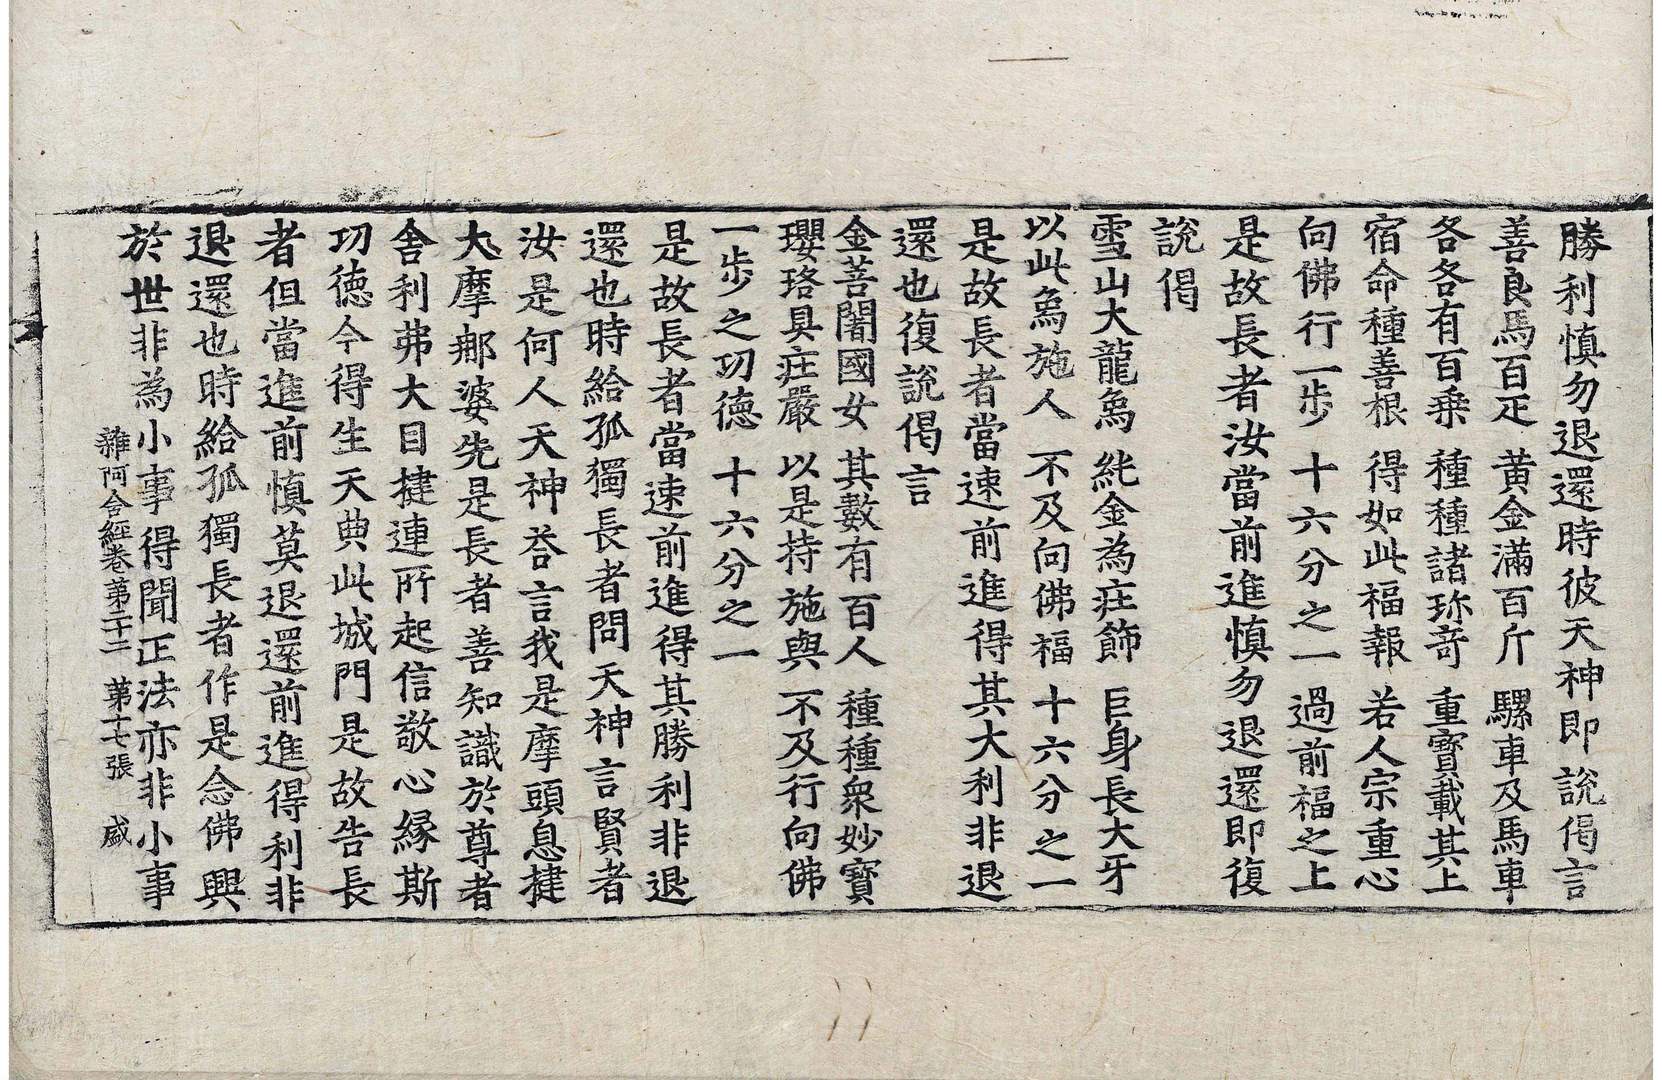 勝利慎勿退還時彼天神即說偈言
善良馬百疋 黃金滿百斤 騾車及馬車
各各有百乘 種種諸珎竒 重寶載其上
宿命種善根 得如此福報 若人宗重心
向佛行一步 十六分之一 過前福之上
是故長者汝當前進慎勿退還即復
說偈
雪山大龍𤉢 純金為莊飾 巨身長大牙
以此𤉢施人 不及向佛福 十六分之一
是故長者當速前進得其大利非退
還也復說偈言
金菩闍國女 其數有百人 種種衆妙寶
瓔珞具莊嚴 以是持施與 不及行向佛
一步之功德 十六分之一
是故長者當速前進得其勝利非退
還也時給孤獨長者問天神言賢者
汝是何人天神荅言我是摩頭息揵
大摩那婆先是長者善知識於尊者
舍利弗大目揵連所起信敬心緣斯
功德今得生天典此城門是故告長
者但當進前慎莫退還前進得利非
退還也時給孤獨長者作是念佛興
於世非為小事得聞正法亦非小事
雜阿含經卷第二十二 第十七張 盛